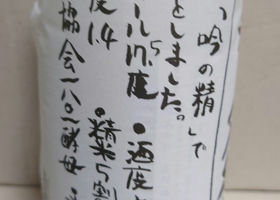 「吟の精」で
としました。
ール17.5度 ●酒度
度1.4 ●精米5割
協会一八〇一酵母